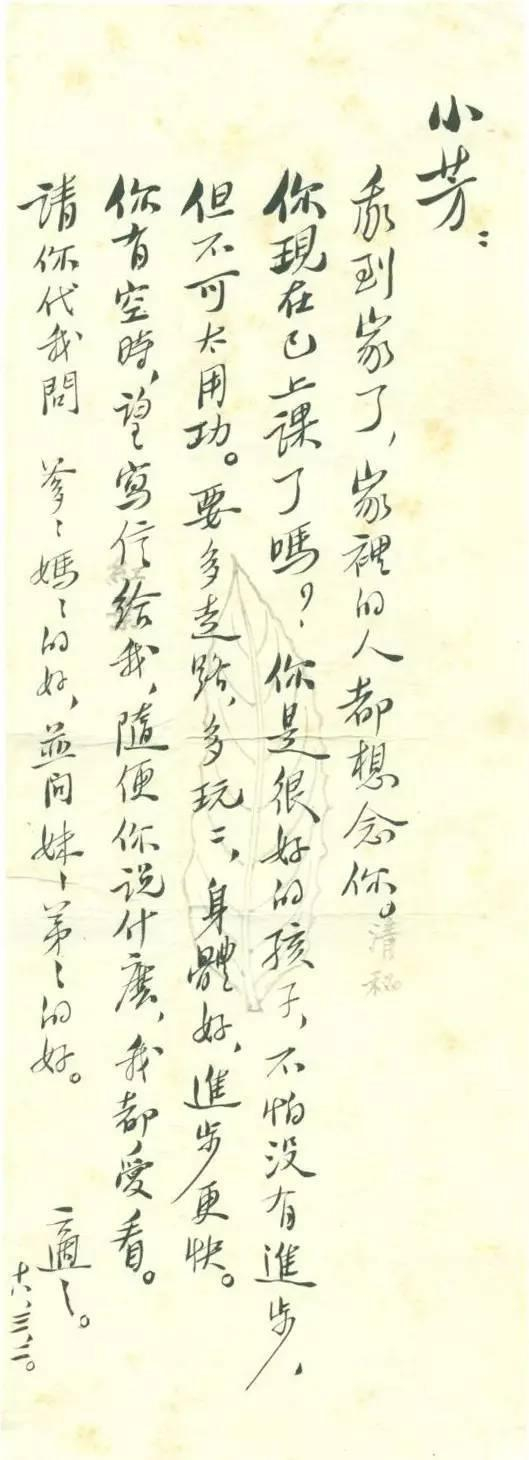 小芳：
我到家了，家裡的人都想念你。
你現在已上課了嗎？你是很好的孩子，不怕没有進步，
但不可太用功。要多走路，多玩〻，身體好，進步更快。
你有空時，望寫信給我，隨便你说什麽，我都愛看。
請你代我問 爹〻媽〻的好，並问妹〻弟〻的好。
適之。
十八、三、二。
清秘